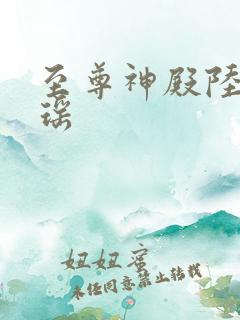 至尊神殿陸
瑶
妞妞蜜
未经同意禁止转载